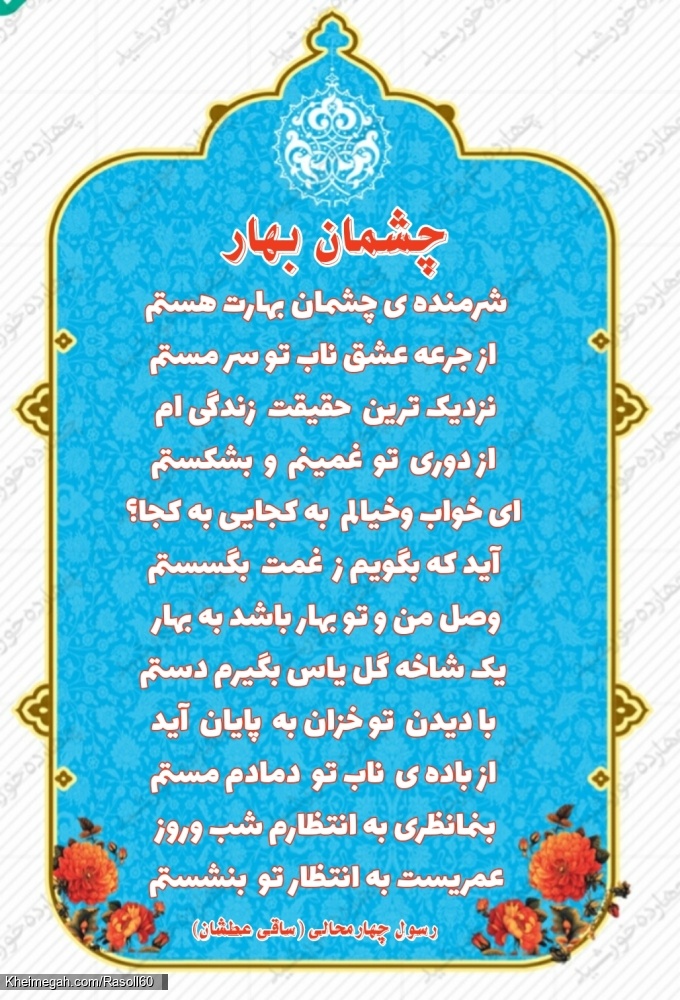 چشمان بهار
شرمنده ی چشمان بهارت هستم
از جرعه عشق ناب تو سر مستم
نزدیک ترین حقیقت زندگی ام
از دوری تو غمینم و بشکستم
ای خواب وخیالم به کجایی به کجا؟
آید که بگویم ز غمت بگسستم
وصل من و تو بهار باشد به بهار
یک شاخه گل یاس بگیرم دستم
با دیدن تو خزان به پایان آید
از باده ی ناب تو دمادم مستم
بنمانظری به انتظارم شب وروز
عمریست به انتظار تو بنشستم
رسول چهارمحالی (ساقی عطشان)
Kheimegah.com/Rasoll60
چهارده خورشید